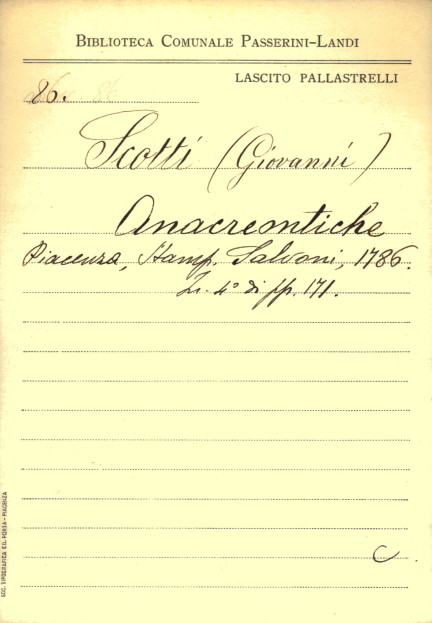 BIBLIOTECA COMUNALE PASSERINI-LANDI
LASCITO PALLASTRELLI
86.
Scotti (Giovanni)
Anacreontiche
Piacenza, Stamp. Salvoni, 1786.
In 4° di pp. 171.
C
SOC. TIPOGRAFICA ED. PORTA - PIACENZA